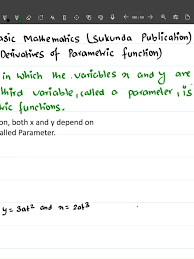 asic Mathematics (Sukunda Publication)
Derivatives of Parametric function)
in which the variables x and y are
third variable, called a parameter, is
tric functions.
on, both x and y depend on
alled Parameter.
y = 3at² and x = 2at³